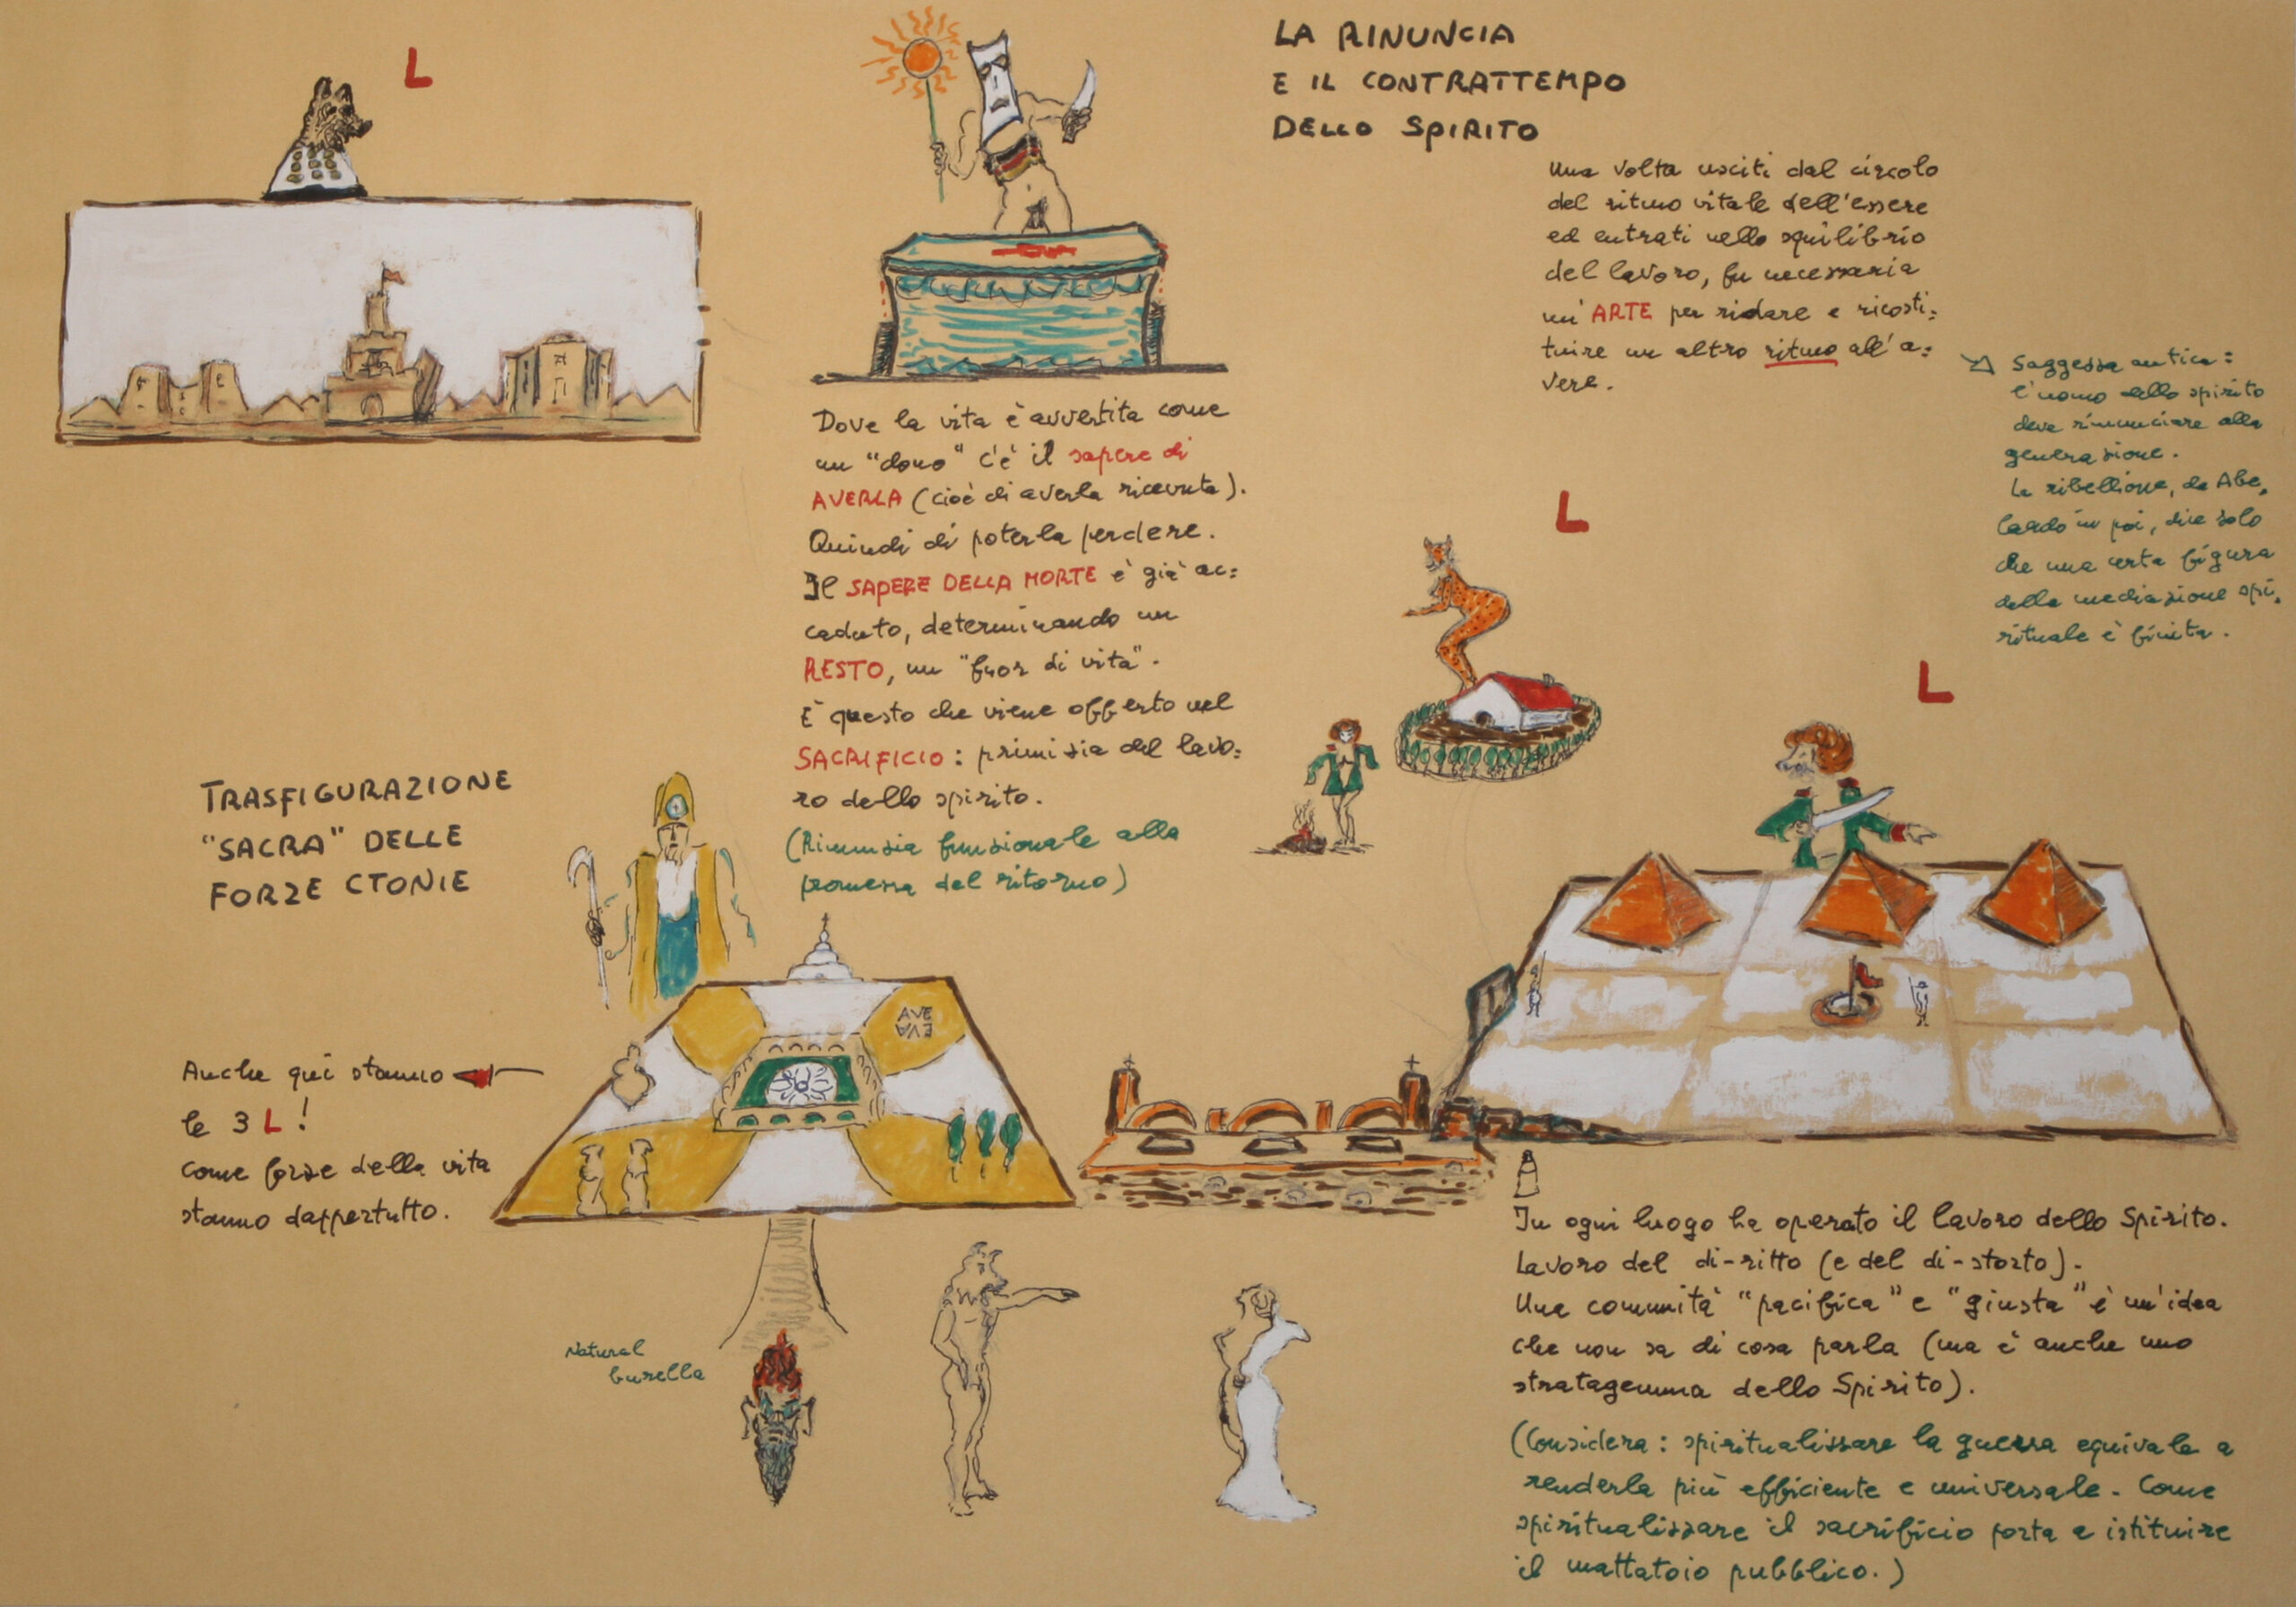 L
LA RINUNCIA
E IL CONTRATTEMPO
DELLO SPIRITO
Una volta usciti dal circolo
del ritmo vitale dell'essere
ed entrati nello squilibrio
del lavoro, fu necessaria
un'ARTE per ridare e ricosti=
tuire un altro ritmo all'a=
vere.
Saggezza antica:
l'uomo dello spirito
deve rinunciare alla
generazione.
La ribellione, da Abe,
lardo in poi, dice solo
che una certa figura
della mediazione spi,
rituale è finita.
Dove la vita è avvertita come
un "dono" c'è il sapere di
AVERLA (cioè di averla ricevuta).
Quindi di poterla perdere.
Il SAPERE DELLA MORTE è già ac=
caduto, determinando un
RESTO, un "fuor di vita".
È questo che viene offerto nel
SACRIFICIO: primizia del lavo=
ro dello spirito.
(Rinunzia funzionale alla
promessa del ritorno)
L
L
TRASFIGURAZIONE
"SACRA" DELLE
FORZE CTONIE
AVE
EVA
Anche qui stanno
le 3 L!
come forze della vita
stanno dappertutto.
Natural
burella
In ogni luogo ha operato il lavoro dello Spirito.
Lavoro del di-ritto (e del di-storto).
Una comunità "pacifica" e "giusta" è un'idea
che non sa di cosa parla (ma è anche uno
stratagemma dello Spirito).
(Considera: spiritualizzare la guerra equivale a
renderla più efficiente e universale. Come
spiritualizzare il sacrificio porta a istituire
il mattatoio pubblico.)